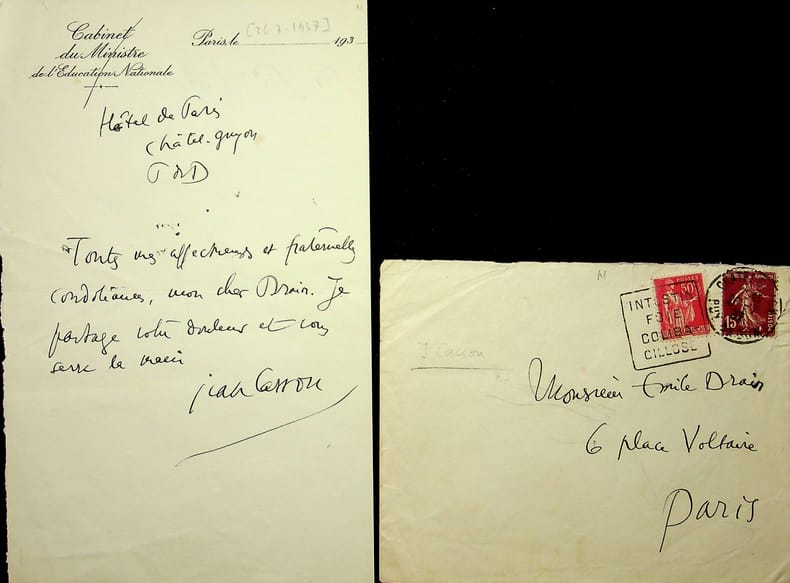 Cabinet
du Ministre
de l'Education Nationale
Paris, le [26-7-1937] 193
Hôtel de Paris
Châtel-guyon
P de D
Toutes mes affectueuses et fraternelles
condoléances, mon cher Drain. Je
partage votre douleur et vous
serre la main
jean Cassou
J. Cassou
POSTES
50
15
INTESTIN
FOIE
COLIBA
CILLOSE
Monsieur Emile Drain
6 place Voltaire
Paris